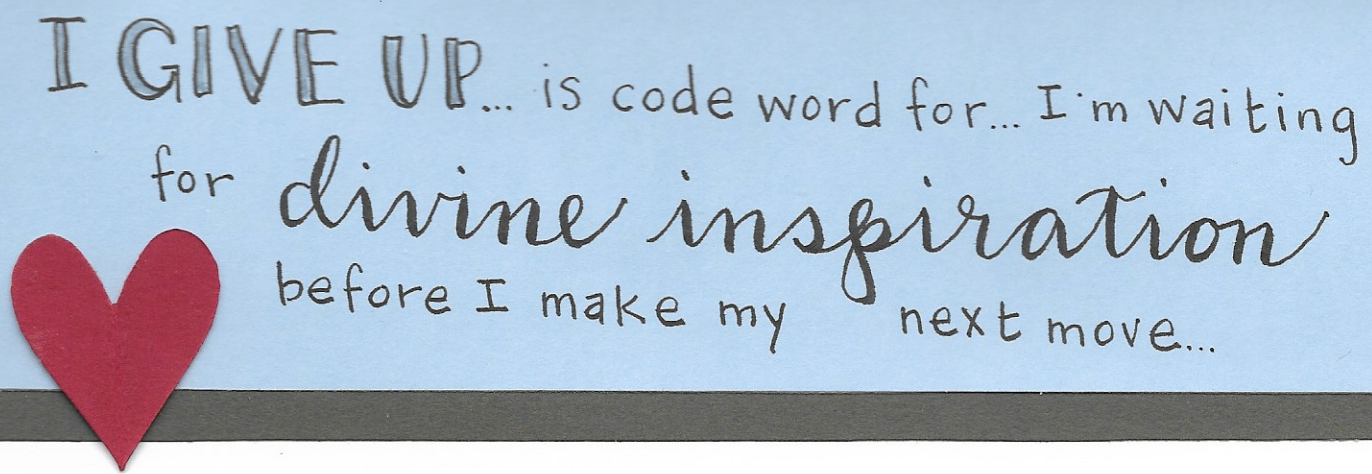 I GIVE UP... is code word for... I'm waiting
for divine inspiration
before I make my next move...